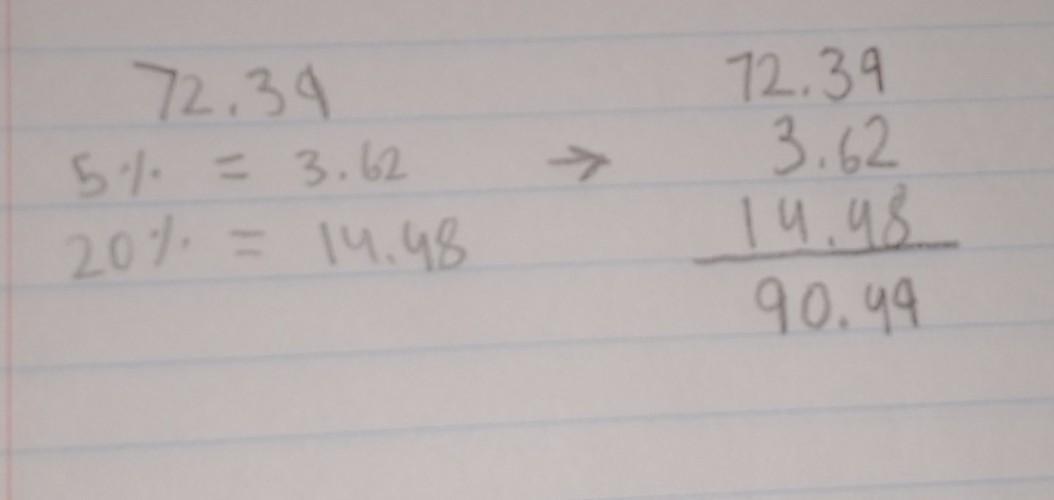 72.39
5% = 3.62
20% = 14.48
→
72.39
3.62
14.48
90.49